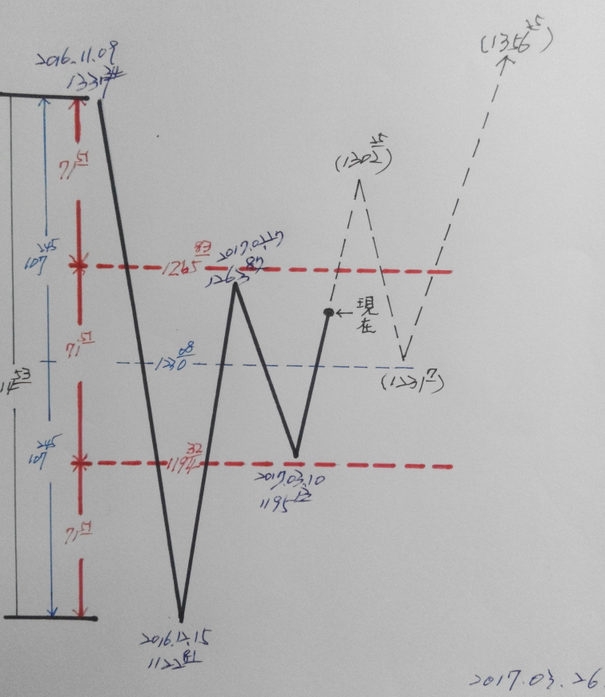 (1356.25)
2016.11.09
1337.34
(1302.25)
71.51
2017.02.27
1265.83
1263.87
107
←現在
71.51
1230.08
(1231.7)
14.53
107
1194.32
2017.03.10
1195
71.51
2016.12.15
1122.81
2017.03.26